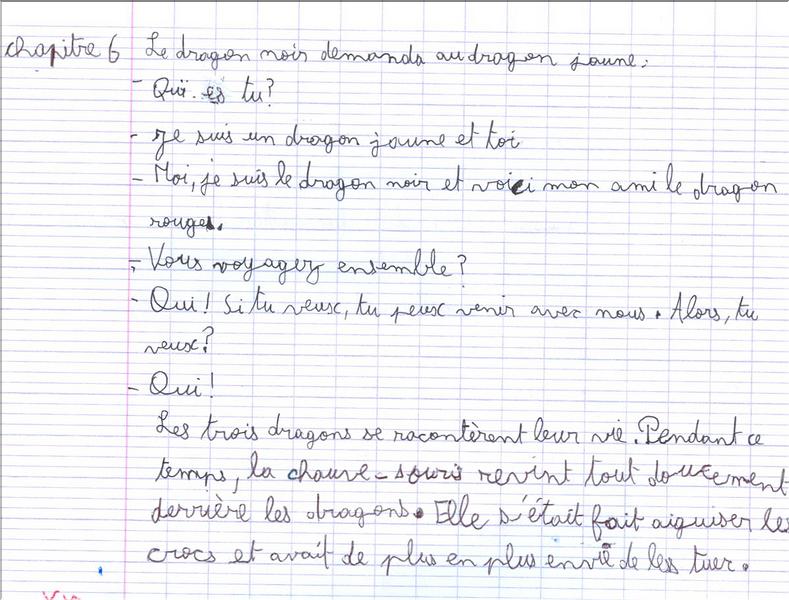 chapitre 6 Le dragon noir demanda au dragon jaune:
- Qui es tu?
- je suis un dragon jaune et toi
- Moi, je suis le dragon noir et voici mon ami le dragon
rouge.
- Vous voyagez ensemble?
- Oui! Si tu veux, tu peux venir avec nous. Alors, tu
veux?
- Oui!
Les trois dragons se racontèrent leur vie. Pendant ce
temps, la chauve-souris revint tout doucement
derrière les dragons. Elle s'était fait aiguiser les
crocs et avait de plus en plus envie de les tuer.